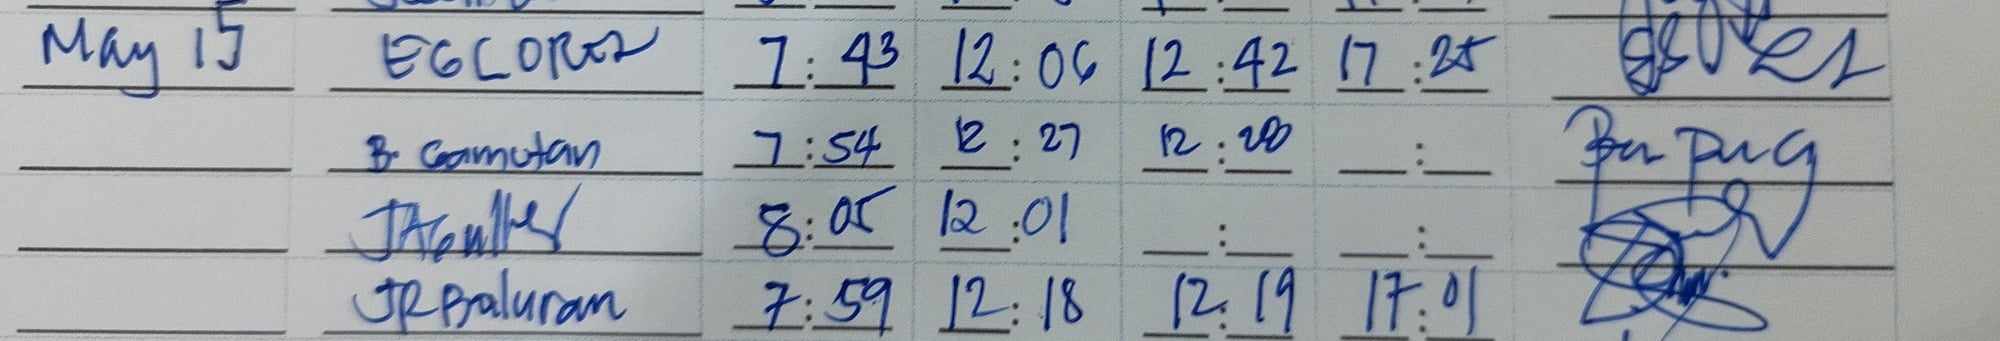 May 15 EGCLORES 7:43 12:06 12:42 17:25
B. Gamutan 7:54 12:27 12:28 :
8:05 12:01 : :
JRBaluran 7:59 12:18 12:19 17:01